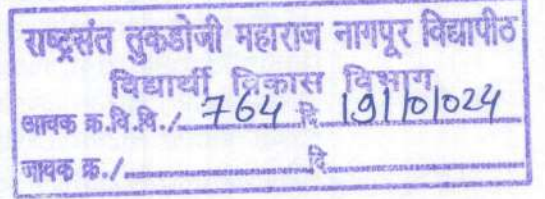 राष्ट्रसंत तुकडोजी महाराज नागपूर विद्यापीठ
विद्यार्थी विकास विभाग
आवक क्र.वि.वि./ 764 दि
जावक क्र./ दि